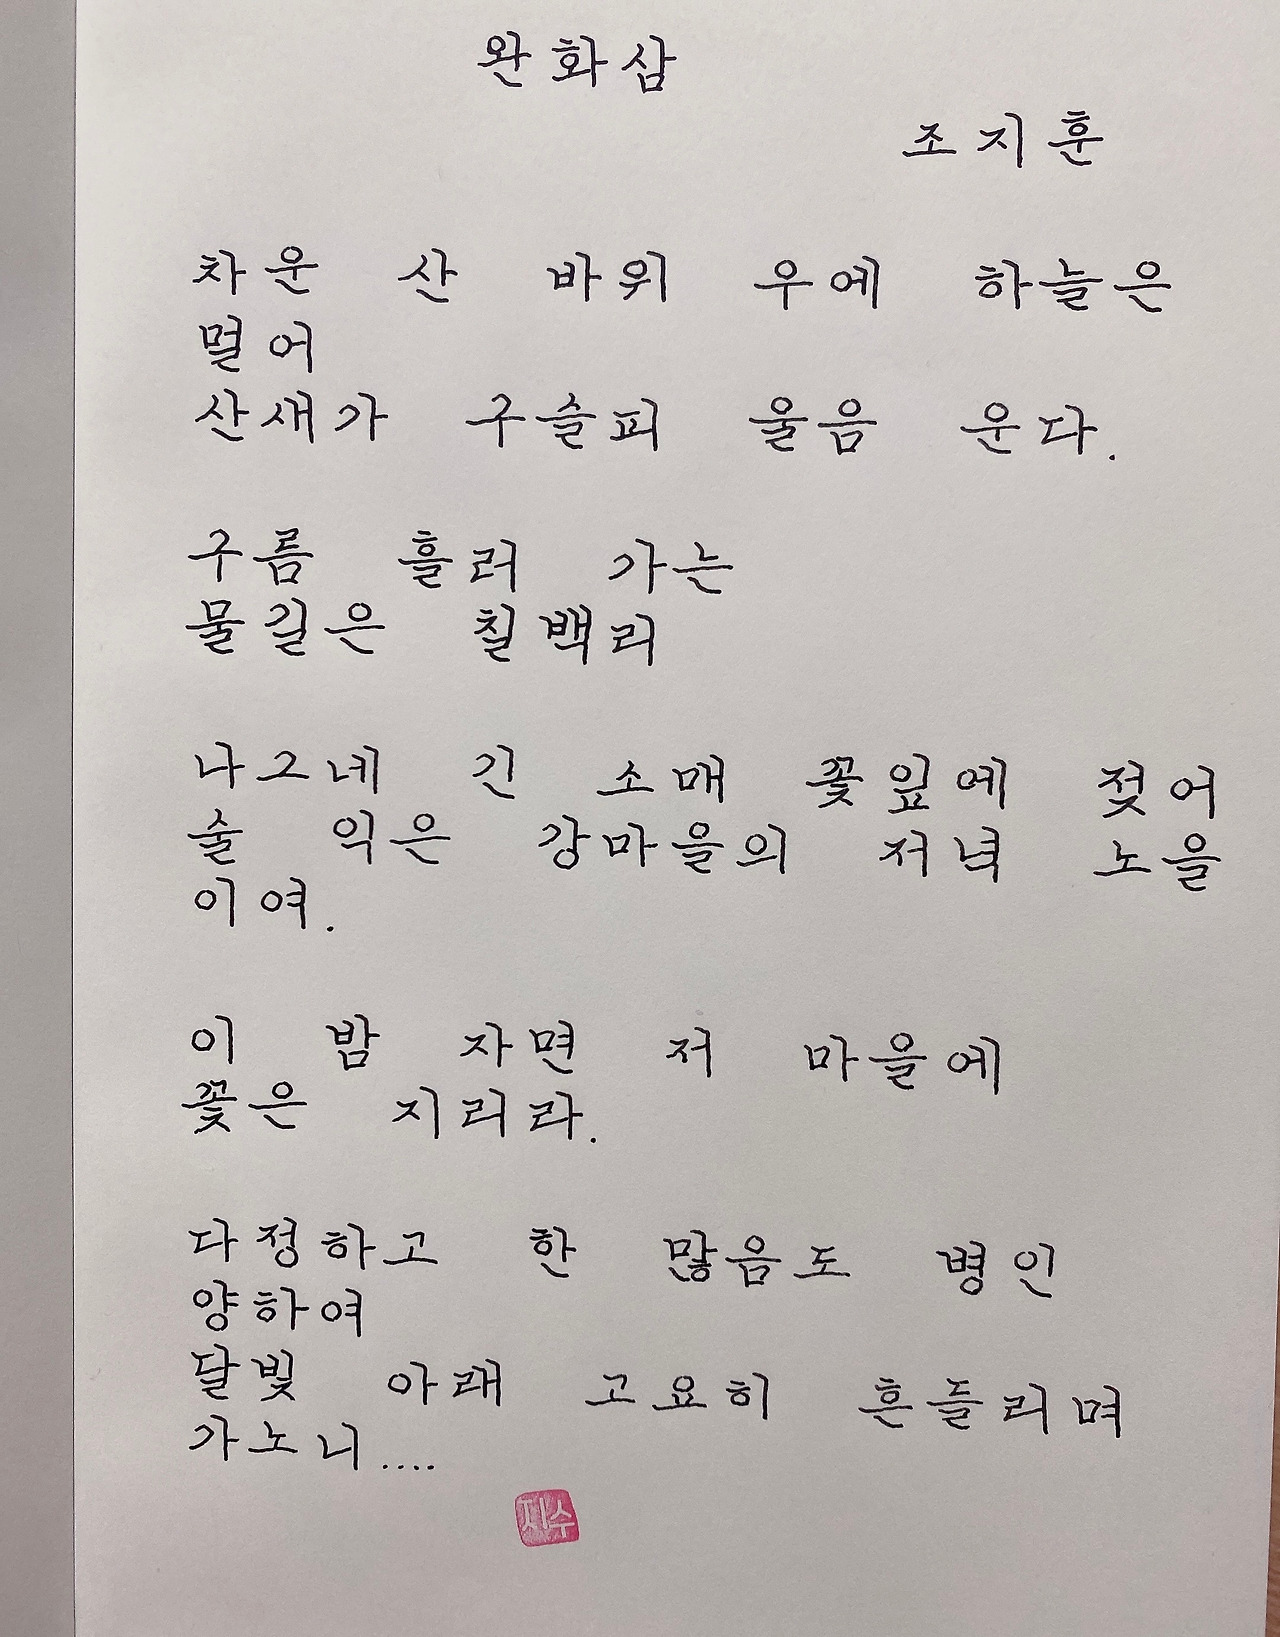 완화삼
조지훈
차운 산 바위 우에 하늘은
멀어
산새가 구슬피 울음 운다.
구름 흘러 가는
물길은 칠백리
나그네 긴 소매 꽃잎에 젖어
술 익은 강마을의 저녁 노을
이여.
이 밤 자면 저 마을에
꽃은 지리라.
다정하고 한 많음도 병인
양하여
달빛 아래 고요히 흔들리며
가노니....
지수